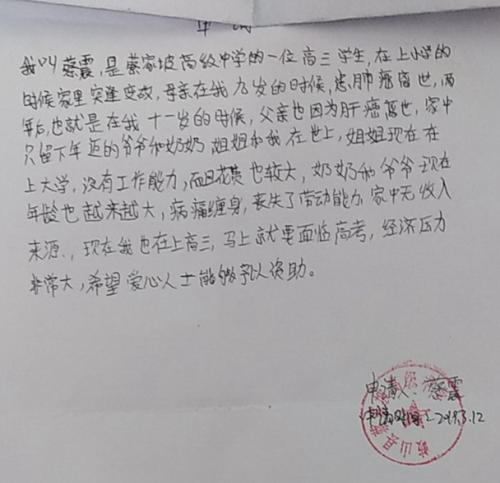 申请
我叫蔡震,是蔡家坡高级中学的一位高三学生,在上小学的
时候家里突逢变故,母亲在我九岁的时候,患肺癌离世,两
年后,也就是在我十一岁的时候,父亲也因为肝癌离世,家中
只留下年迈的爷爷和奶奶,姐姐和我在世上,姐姐现在在
上大学,没有工作能力,而且花费也较大,奶奶和爷爷现在
年龄也越来越大,病痛缠身,丧失了劳动能力,家中无收入
来源.,现在我也在上高三,马上就要面临高考,经济压力
非常大,希望爱心人士能够予以资助。
申请人:蔡震
申请时间:2019.3.12
岐山县